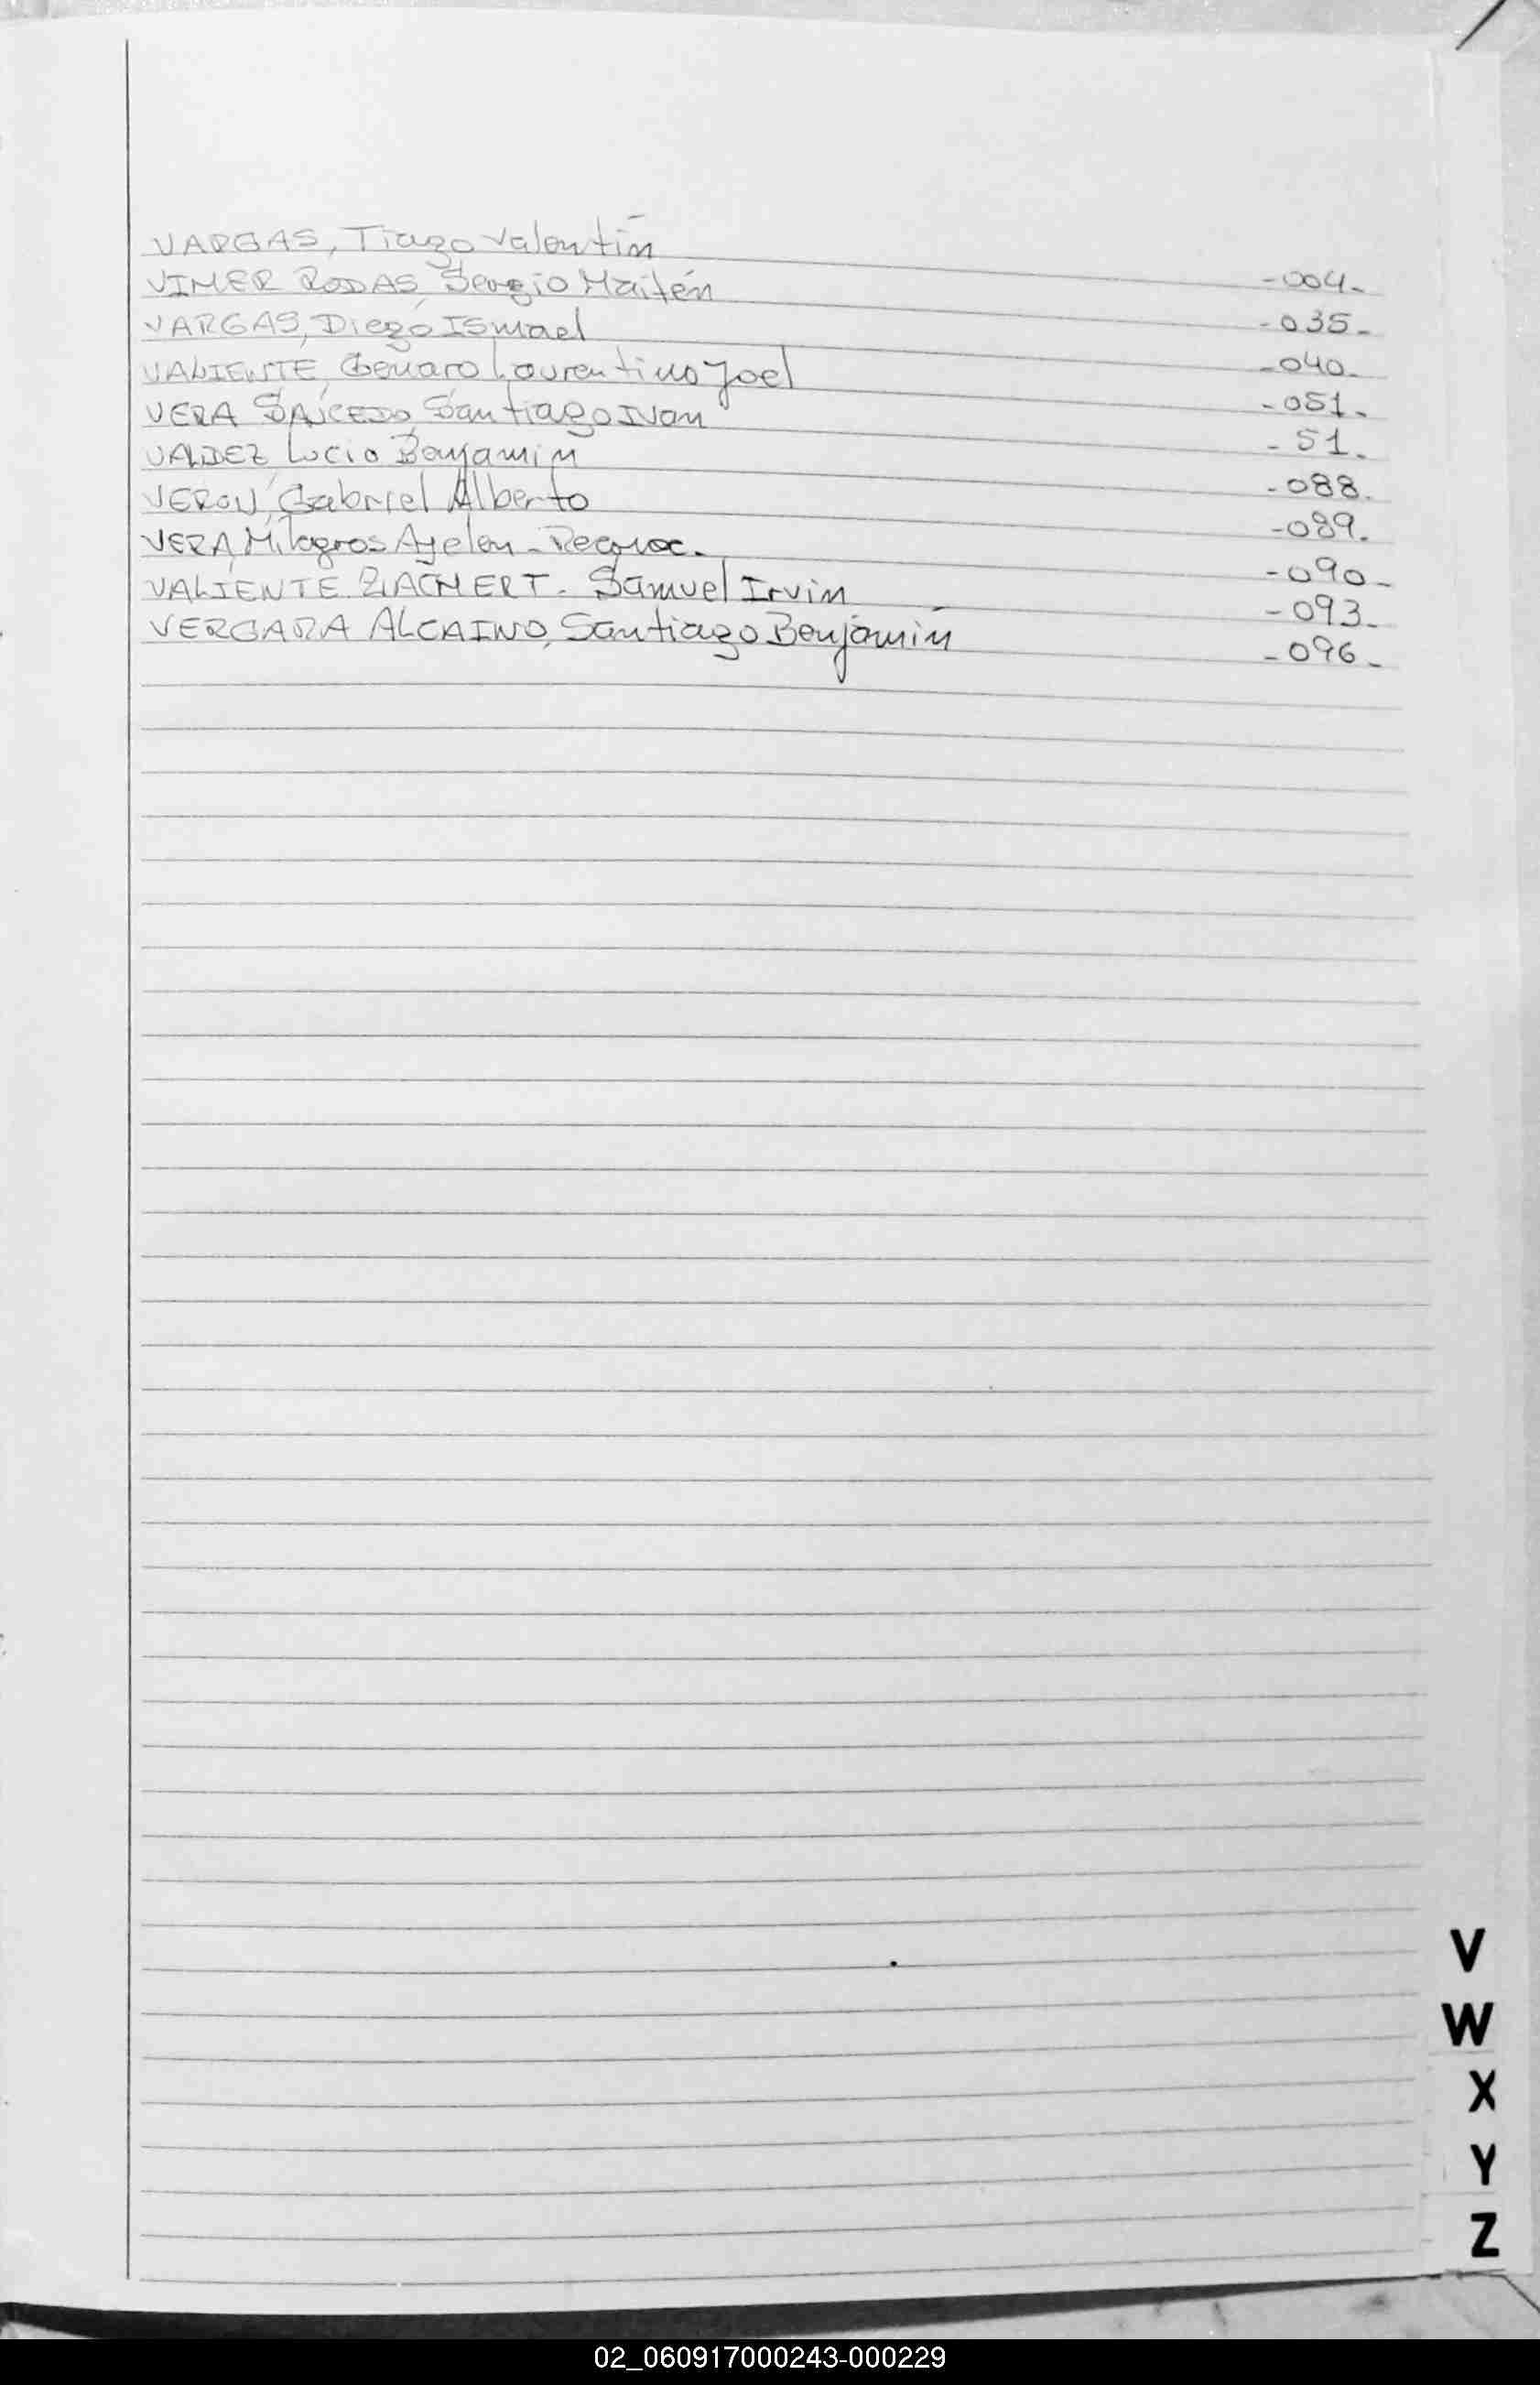 VARGAS, Tiago Valentín -004-
VIMER RODAS, Sergio Maitén -035-
VARGAS, Diego Ismael -040-
VALIENTE, Genaro Laurentino Joel -051-
VERA SAICEDO, Santiago Ivan - 51.
VALDEZ, Lucio Benjamin -088.
VERON, Gabriel Alberto -089.
VERA, Milagros Ayelen - Reconoc. -090-
VALIENTE ZIACHERT. Samuel Irvin -093-
VERGARA ALCAINO, Santiago Benjamín -096-
V
W
X
Y
Z
02_060917000243-000229